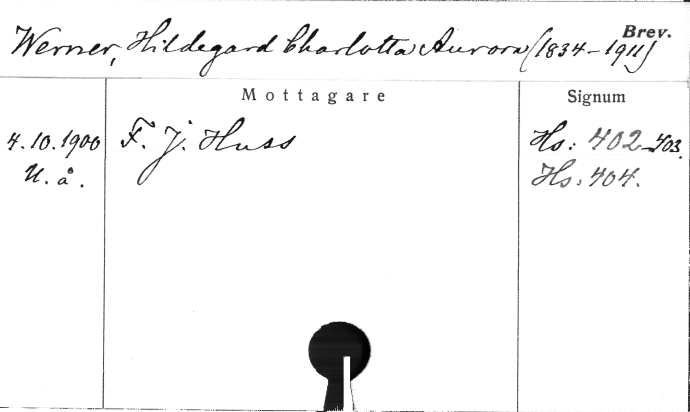 Brev.
Werner, Hildegard Charlotta Aurora (1834-1911)
Mottagare Signum
4.10.1900 F. J. Huss Hs: 402-403.
U. å. Hs: 404.